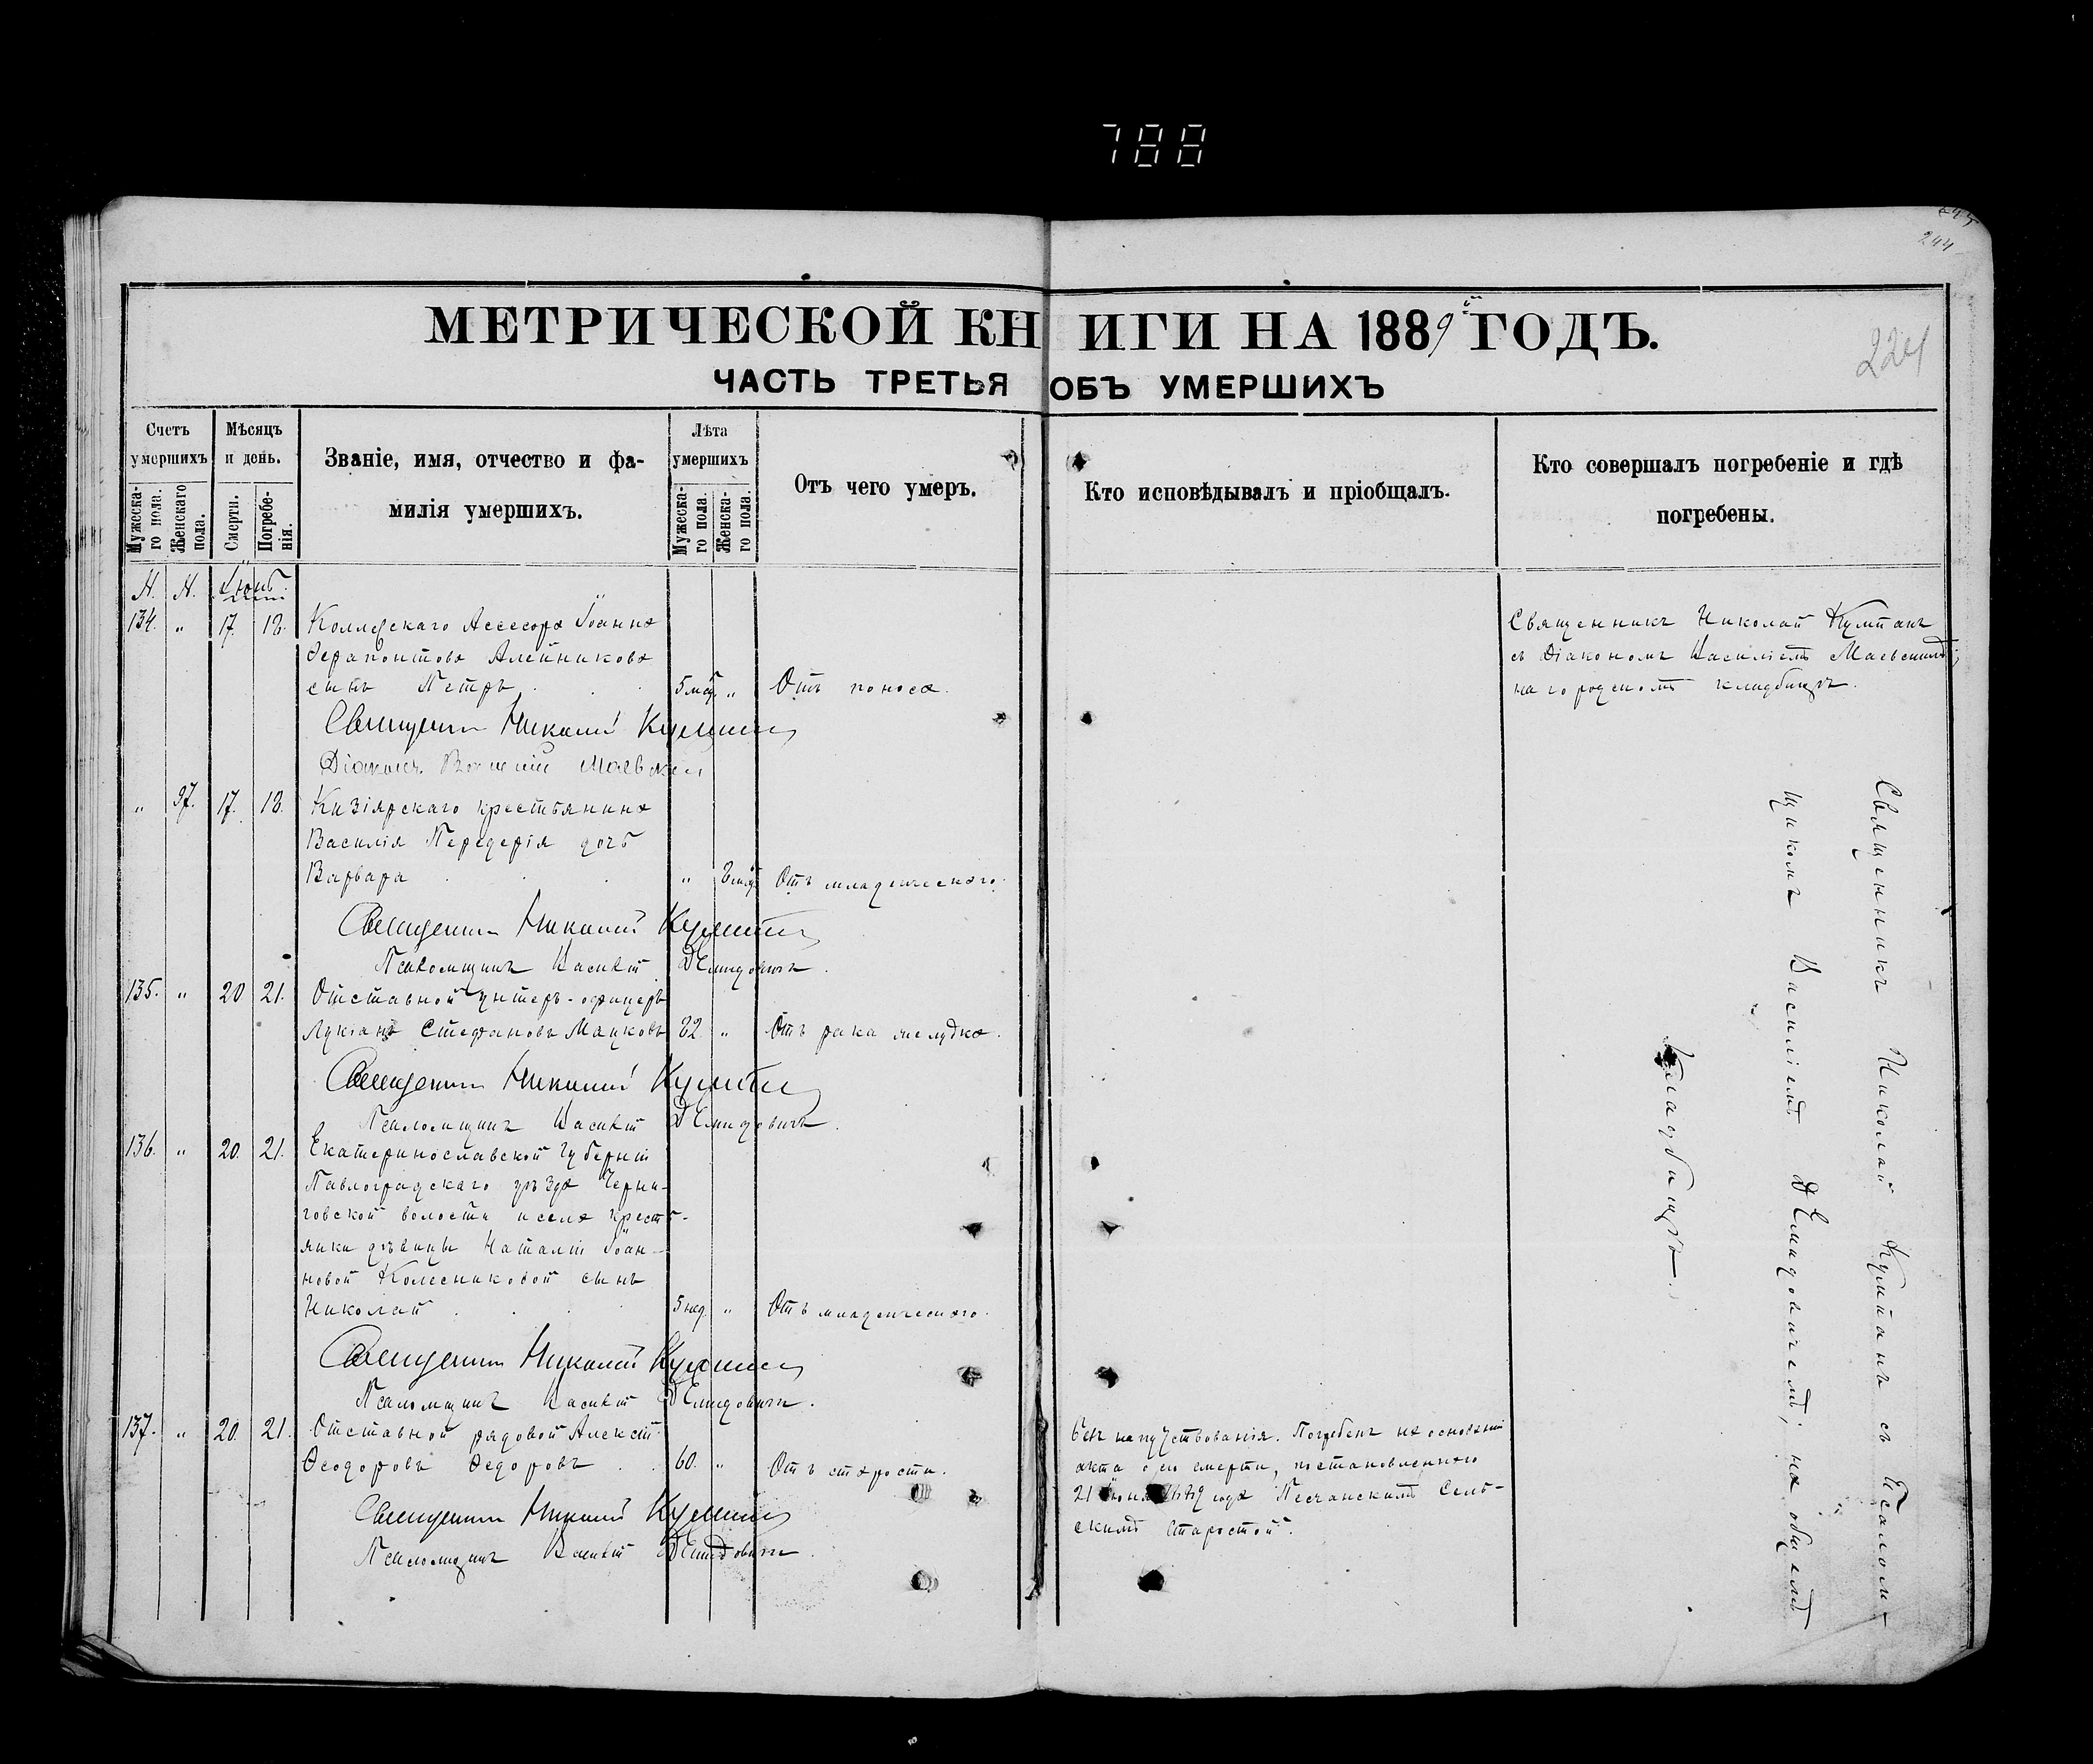 788
244
МЕТРИЧЕСКОЙ КНИГИ НА 1889й ГОДЪ.
224
ЧАСТЬ ТРЕТЬЯ ОБЪ УМЕРШИХЪ
Счетъ умершихъ
Мужеска-го пола.
Женскаго пола.
Мѣсяцъ и день.
Смерти.
Погребе-нія.
Званіе, имя, отчество и фа-
милія умершихъ.
Лѣта умершихъ
Мужеска-го пола
Женска-го пола.
Отъ чего умеръ.
Кто исповѣдывалъ и пріобщалъ.
Кто совершалъ погребеніе и гдѣ
погребены.
М. Ж. Іюнь
134. " 17. 18. Коллежскаго Ассесора Іоанна
Ферапонтова Алейникова
сынъ Петръ . . 5 мѣс. " Отъ поноса.
Священникъ Николай Кумпанъ
съ Діакономъ Василіемъ Маевскимъ;
на городскомъ кладбищѣ.
Священникъ Николай Кумпанъ
Діаконъ Василій Маевскій
" 97. 17. 18. Кизіярскаго крестьянина
Василія Передерія дочь
Варвара . . . " 8 мѣс. Отъ младенческаго.
Священникъ Николай Кумпанъ
Псаломщикъ Василій Демидовичъ.
135. " 20 21. Отставной унтеръ-офицеръ
Лукіанъ Стефановъ Мацковъ 82. " Отъ рака желудка.
Священникъ Николай Кумпанъ
Псаломщикъ Василій Демидовичъ.
136. " 20. 21. Екатеринославской губерніи
Павлоградскаго уѣзда Черни-
говской волости и села кресть-
янки дѣвицы Наталіи Іоан-
новой Колесниковой сынъ
Николай . . . 5 нед. " Отъ младенческаго.
Священникъ Николай Кумпанъ
Псаломщикъ Василій Демидовичъ.
137. " 20. 21. Отставной рядовой Алексѣй
Ѳеодоровъ Ѳедоровъ . . 60. " Отъ старости.
Безъ напутствованія. Погребенъ на основаніи
акта о его смерти, постановленнаго
21 Іюня 1889 года Песчанскимъ Сель-
скимъ Старостой.
Священникъ Николай Кумпанъ
Псаломщикъ Василій Демидовичъ.
Священникъ Николай Кумпанъ съ Псалом-
щикомъ Василіемъ Демидовичемъ; на общемъ
кладбищѣ.